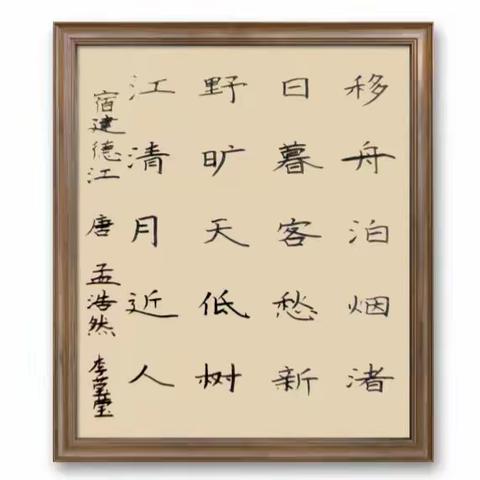 移舟泊烟渚
日暮客愁新
野旷天低树
江清月近人
宿建德江 唐 孟浩然 李莹莹